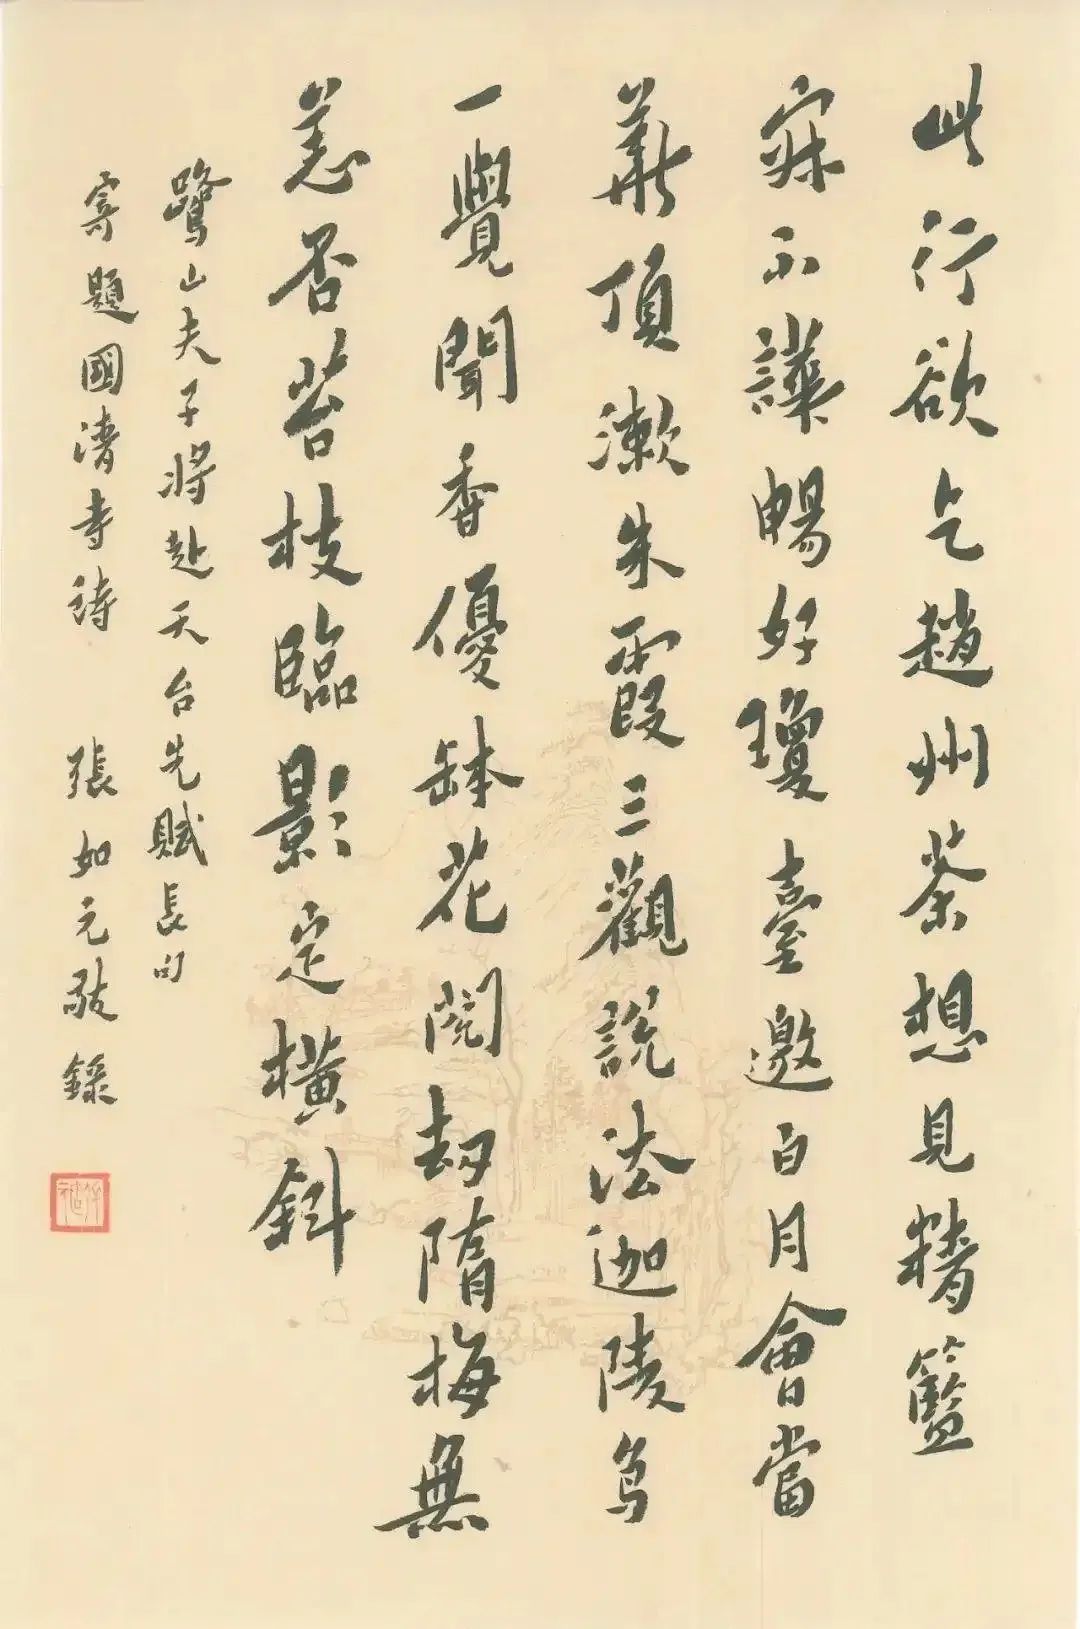 此行欲乞趙州茶想見精籃
寂不譁暢好瓊臺邀白月會當
華頂漱朱霞三觀說法迦陵鳥
一覺聞香優鉢花閱劫隋梅無
恙否苔枝臨影定橫斜
鷺山夫子將赴天台先賦長句
寄題國清寺詩 張如元敬錄